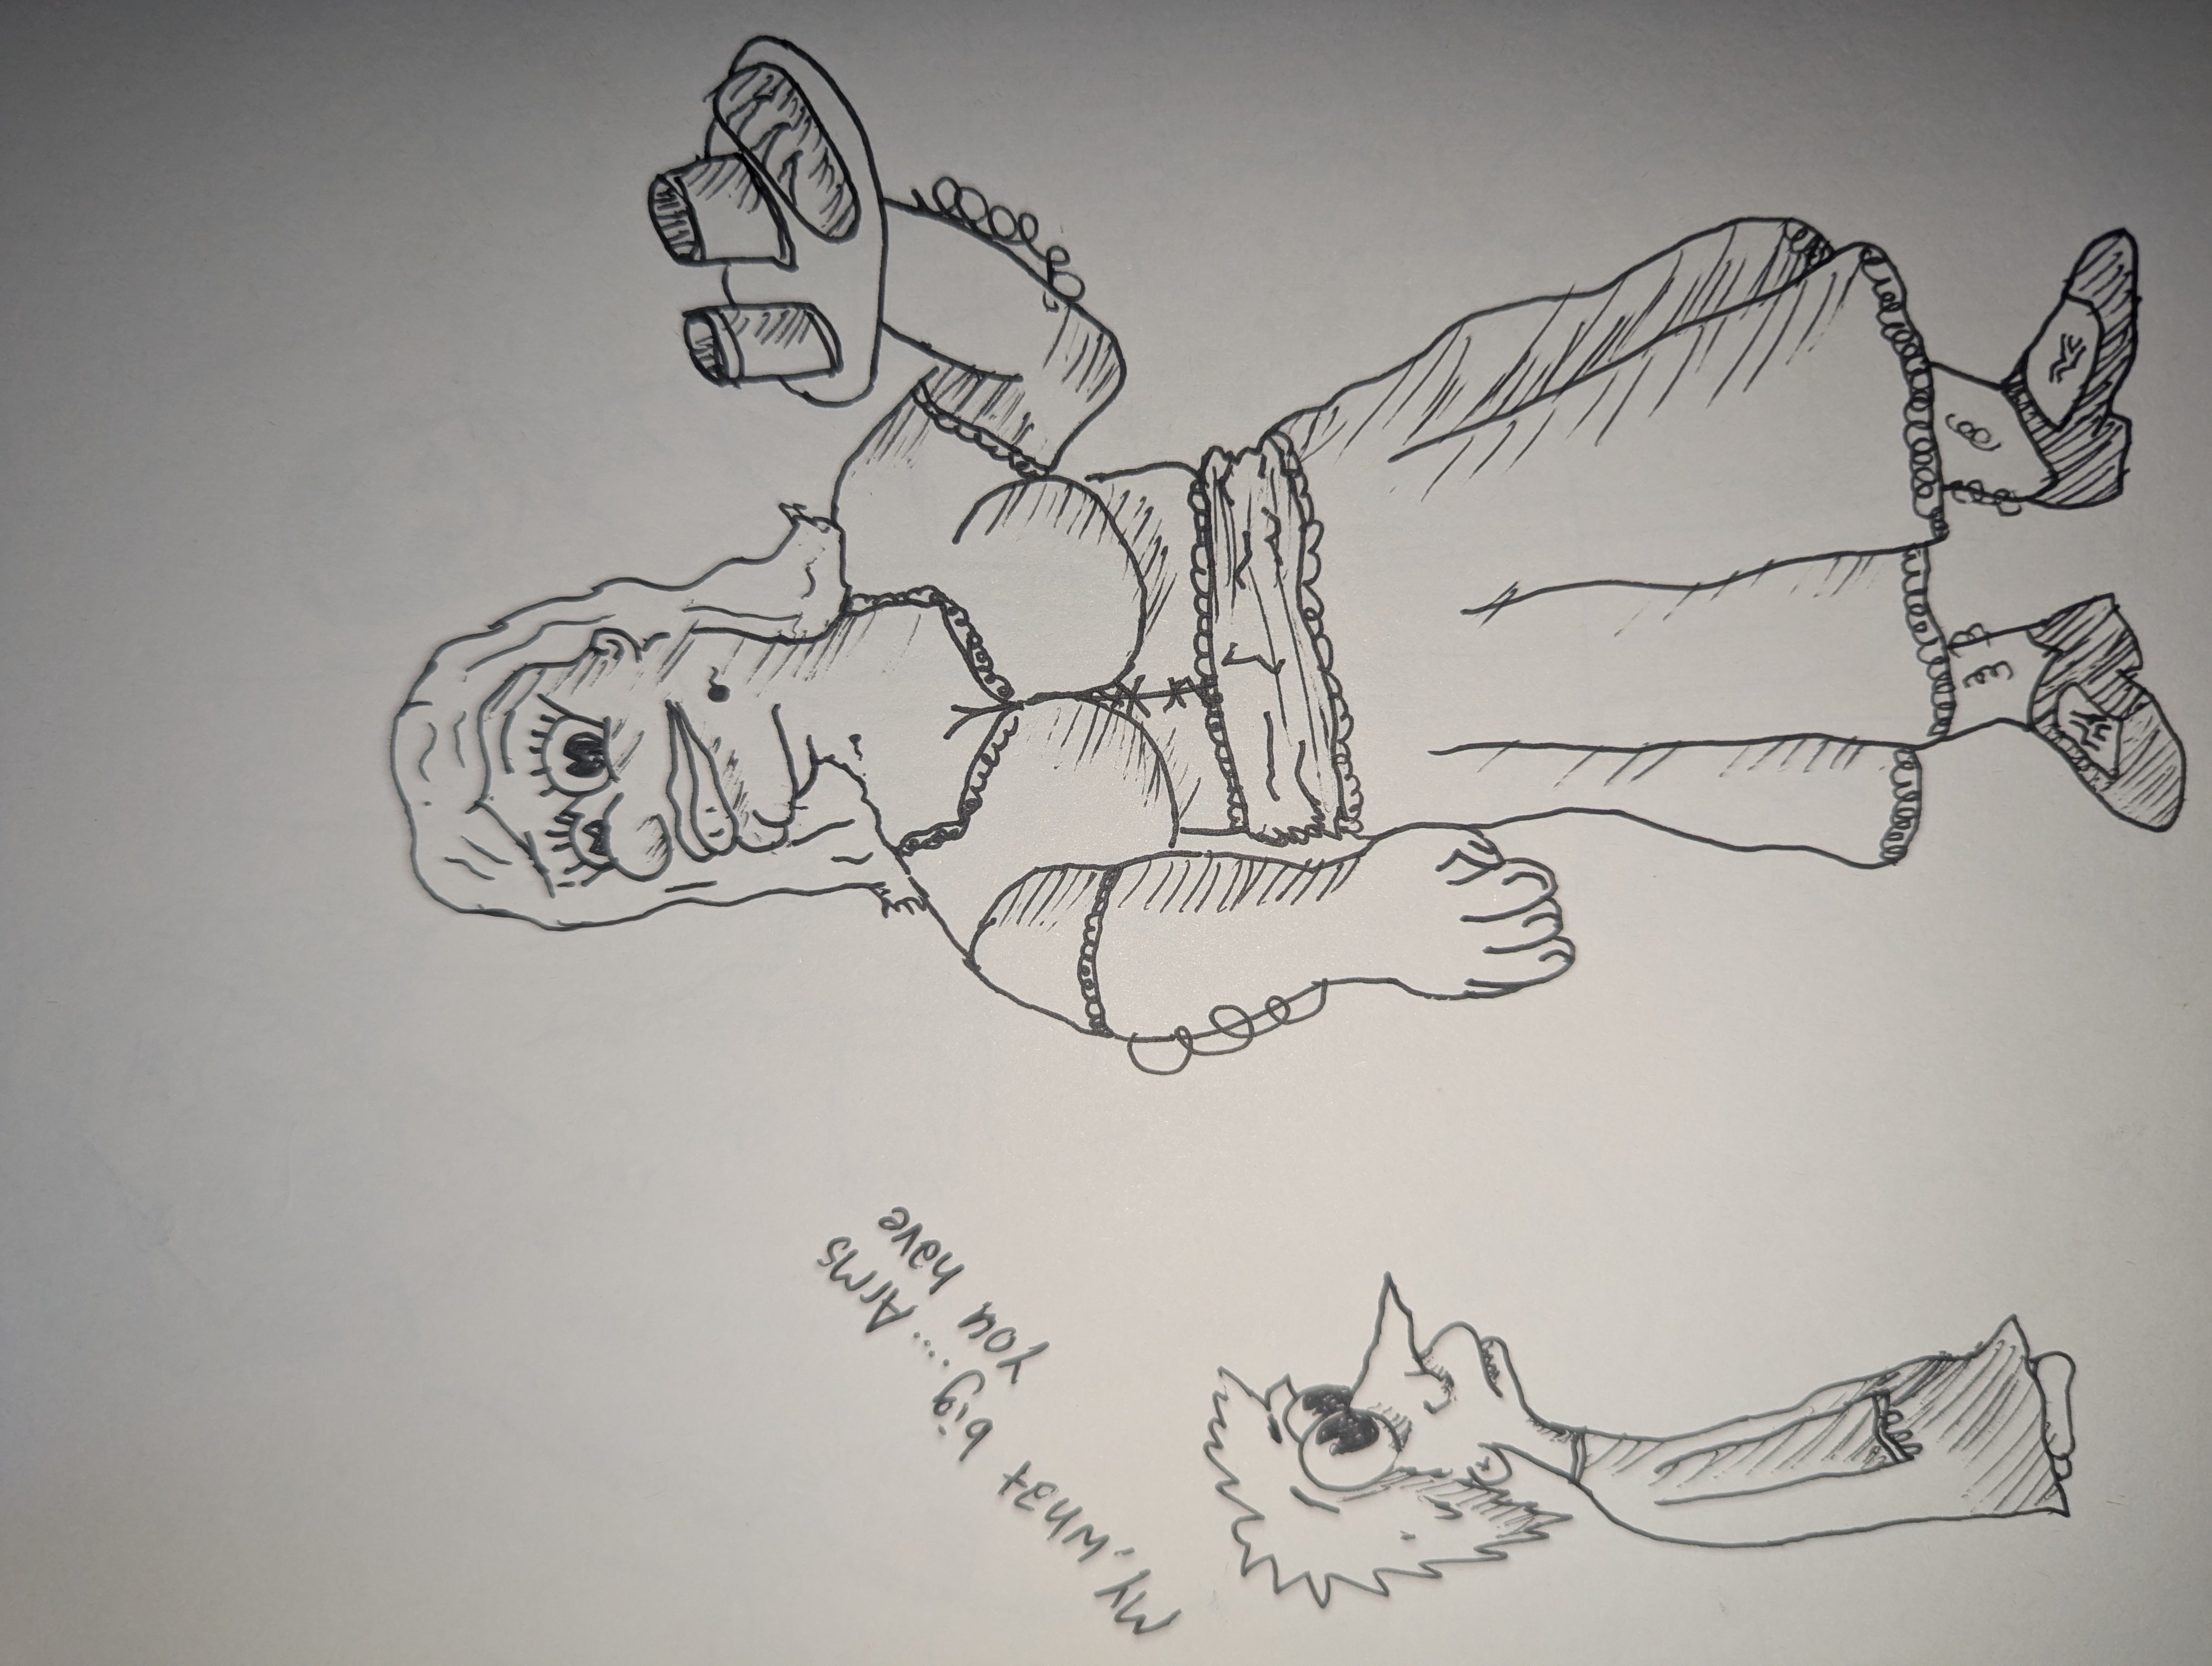 My, what big.... Arms
you have